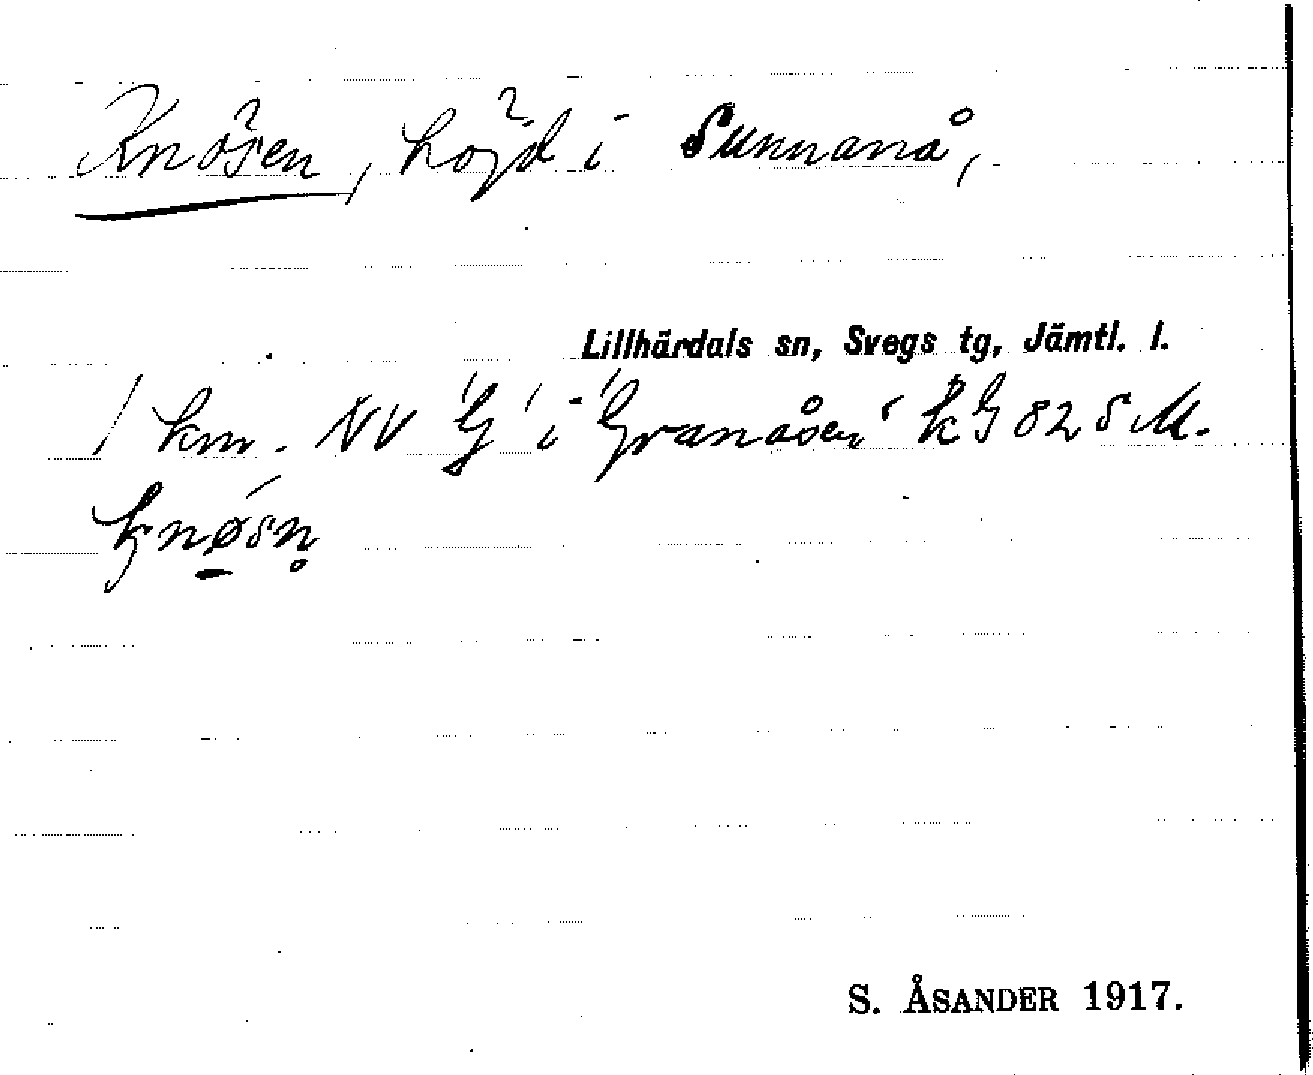 Knösen, höjd i Sunnanå,
Lillhärdals sn, Svegs tg, Jämtl. l.
1 km. NV 'G' i 'Granåsen' kG 82 S M.
knøsn̥
S. ÅSANDER 1917.